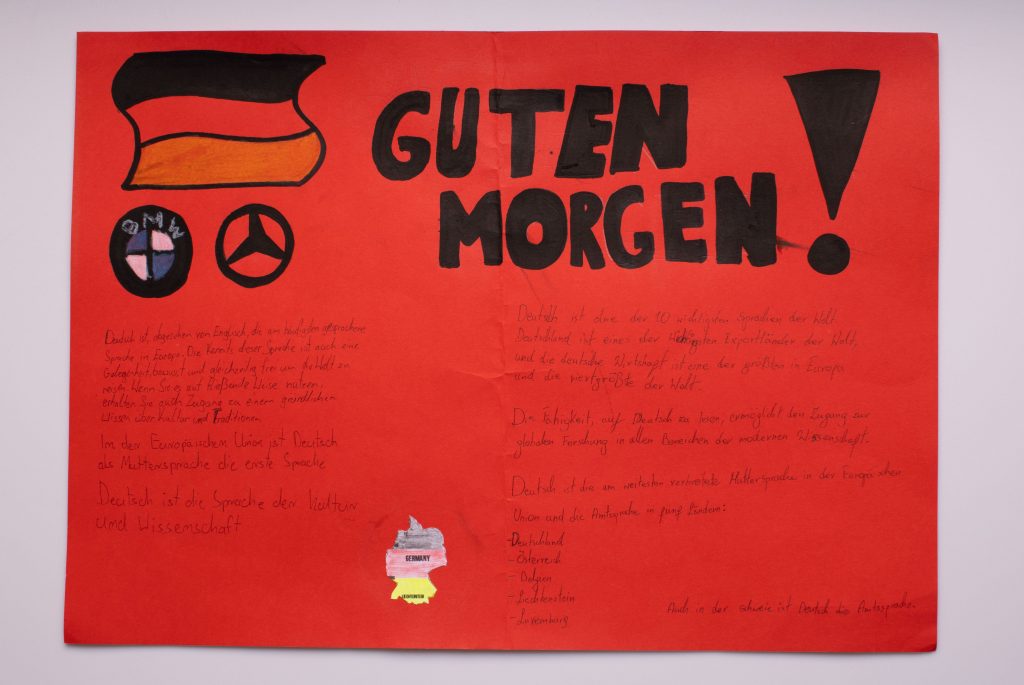 GUTEN
MORGEN!
BMW
Deutsch ist, abgesehen von Englisch, die am häufigsten gesprochene
Sprache in Europa. Die Kenntnis dieser Sprache ist auch eine
und gleichzeitig frei um die Welt zu
reisen. Wenn Sie es auf fließende Weise nutzen,
erhalten Sie auch Zugang zu einem gründlichen
Wissen über Kultur und Traditionen.
Im der Europäischem Union ist Deutsch
als Muttersprache die erste Sprache
Deutsch ist die Sprache der Kultur
und Wissemschaft
GERMANY
Deutsch ist eine der 10 wichtigsten Sprachen der Welt.
Deutschland ist eines der Exportländer der Welt,
und die deutsche Wirtschaft ist eine der größten in Europa
und die viertgrößte der Welt.
Die Fähigkeit, auf Deutsch zu lesen, ermöglicht den Zugang zur
globalen Forschung in allen Bereichen der modernen Wissenschaft.
Deutsch ist die am weitesten verbreitete Muttersprache in der Europäischen
Union und die Amtsprache in fünf Ländern:
- Deutschland
- Österreich
- Belgien
- Liechtenstein
- Luxemburg
Auch in der schweiz ist Deutsch die Amtssprache.